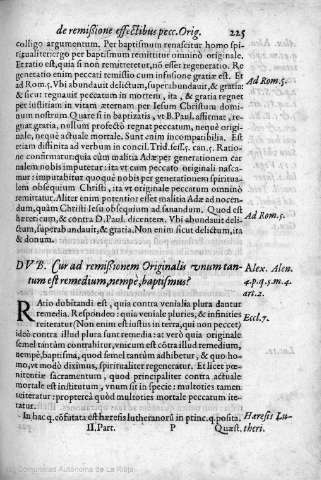 de remissione effectibus pecc. Orig. 225
colligo argumentum. Per baptismum renascitur homo spi-
ritualiter: ergo per baptismum remittitur omnino originale.
Et ratio est, quia si non remitteretur, nõ esset regeneratio. Re
generatio enim peccati remissio cum infusione gratiæ est. Et
ad Rom. 5. Vbi abundauit delictum, superabundauit, &gratia: Ad Rom. 5.
&sicut regnauit peccatum in mortem, ita, & gratia regnet
per iustitiam in vitam æternam per Iesum Christum domi-
num nostrum. Quare si in baptizatis, vt B. Paul. affirmat, re-
gnat gratia, nullum profectò regnat peccatum, neque origi-
nale, neque actuale mortale. Sunt enim incompatibilia. Est
etiam distinita ad verbum in concil. Trid. sess. 5. can. 5. Ratio-
ne confirmatur: quia cùm malitia Adæ per generationem car
nalem nobis imputetur: ita vt cum peccato originali nasca-
mur: imputabitur quoque nobis per generationem spiritua-
lem obsequium Christi, ita vt originale peccatum omninò
remittatur. Aliter enim potentior esset malitia Adæ ad nocen-
dum, quàm Christi Iesu obsequium ad sanandum. Quod est
hæreticum, & contra D. Paul. dicentem. Vbi abundauit deli- Ad Rom. 5.
ctum, superabundauit, & gratia. Non enim sicut delictum, ita
& donum.
DVB. Cur ad remissionem Originalis vnum tan- Alex. Alen.
tum est remedium, nempè, baptismus? 4. p. q. 5. m. 4.
ari. 2.
RAtio dubitandi est, quia contra venialia plura dantur
remedia. Respondeo: quia veniale pluries, & infinities
reiteratur (Non enim est iustus in terra, qui non peccet) Eccl. 7.
ideò contra illud plura sunt remedia: at verò quia originale
semel tantùm contrahitur, vnicum est cõtra illud remedium,
nempè, baptisma, quod semel tantùm adhibetur, & quo ho-
mo, vt modò diximus, spiritualiter regeneratur. Et licet pœ-
nitentiæ sacramentum, quod principaliter contra actuale
mortale est institutum, vnum sit in specie: multoties tamen
iteritetur: proptereà quòd multoties mortale peccatum ite-
ratur.
In hac q. cõfutata est hæresis lutheranorũ in princ. q. posita. Hæresis Lu-
II. Part. P Quæst. theri.
Comunidad Autónoma de La Rioja